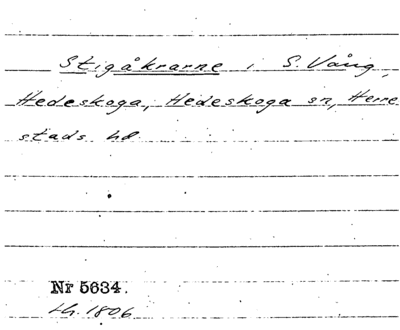 Stigåkrarne i S. Vång,
Hedeskoga, Hedeskoga sn, Herre
stads hd
Nr 5634.
LH. 1806